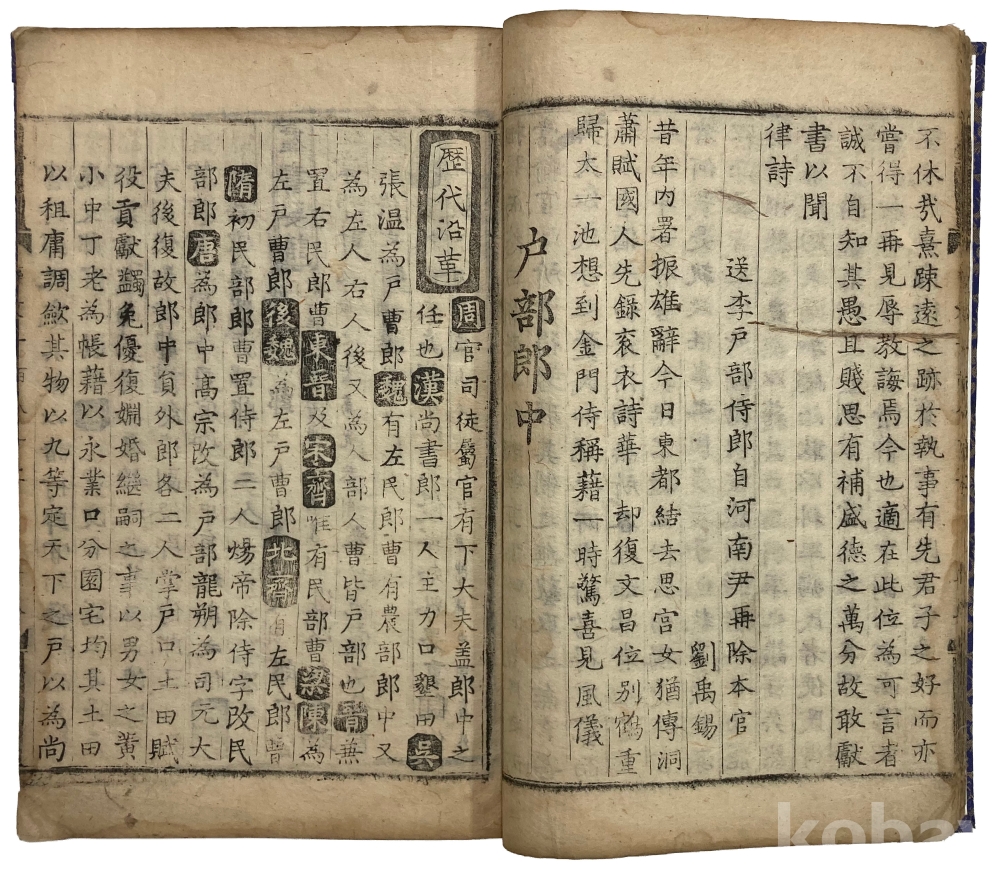 不休哉熹疎遠之跡於執事有先君子之好而亦
嘗得一再見辱教誨焉今也適在此位為可言者
誠不自知其愚且賤思有補盛德之萬分故敢獻
書以聞
律詩
送李戶部侍郎自河南尹再除本官
劉禹錫
昔年內署振雄辭今日東都結去思宮女猶傳洞
蕭賦國人先錄衮衣詩華却復文昌位別鶴重
歸太一池想到金門侍稱藉一時驚喜見風儀
户部郎中
歷代沿革
周官司徒屬官有下大夫盖郎中之
任也漢尚書郎一人主力口墾田吳
張温為戸曹郎魏有左民郎曹有農部郎中又
為左人右人後又為人部人曹皆戸部也晉兼
置右民郎曹東晉及宋齊唯有民部曹梁陳為
左戸曹郎後魏為左戸曹郎北齊有左民郎曹
隋初民部郎曹置侍郎二人煬帝除侍字改民
部郎唐為郎中髙宗改為戸部龍朔為司元大
夫後復故郎中員外郎各二人掌戸口土田賦
役貢獻蠲免優復婣婚繼嗣之事以男女之黄
小中丁老為帳藉以永業口分園宅均其土田
以租庸調歛其物以九等定天下之戸以為尚
koba